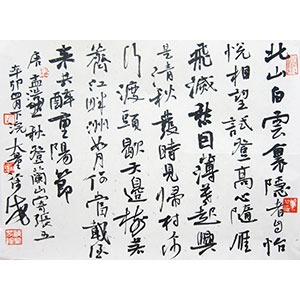 北山白雲裏隱者自怡
悅相望試登高心隨雁
飛滅愁因薄暮起興
是清秋發時見歸村沙
行渡頭歇天邊樹若
薺江畔洲如月何當載酒
來共醉重陽節
唐孟浩然秋登蘭山寄張五
辛卯四月下浣